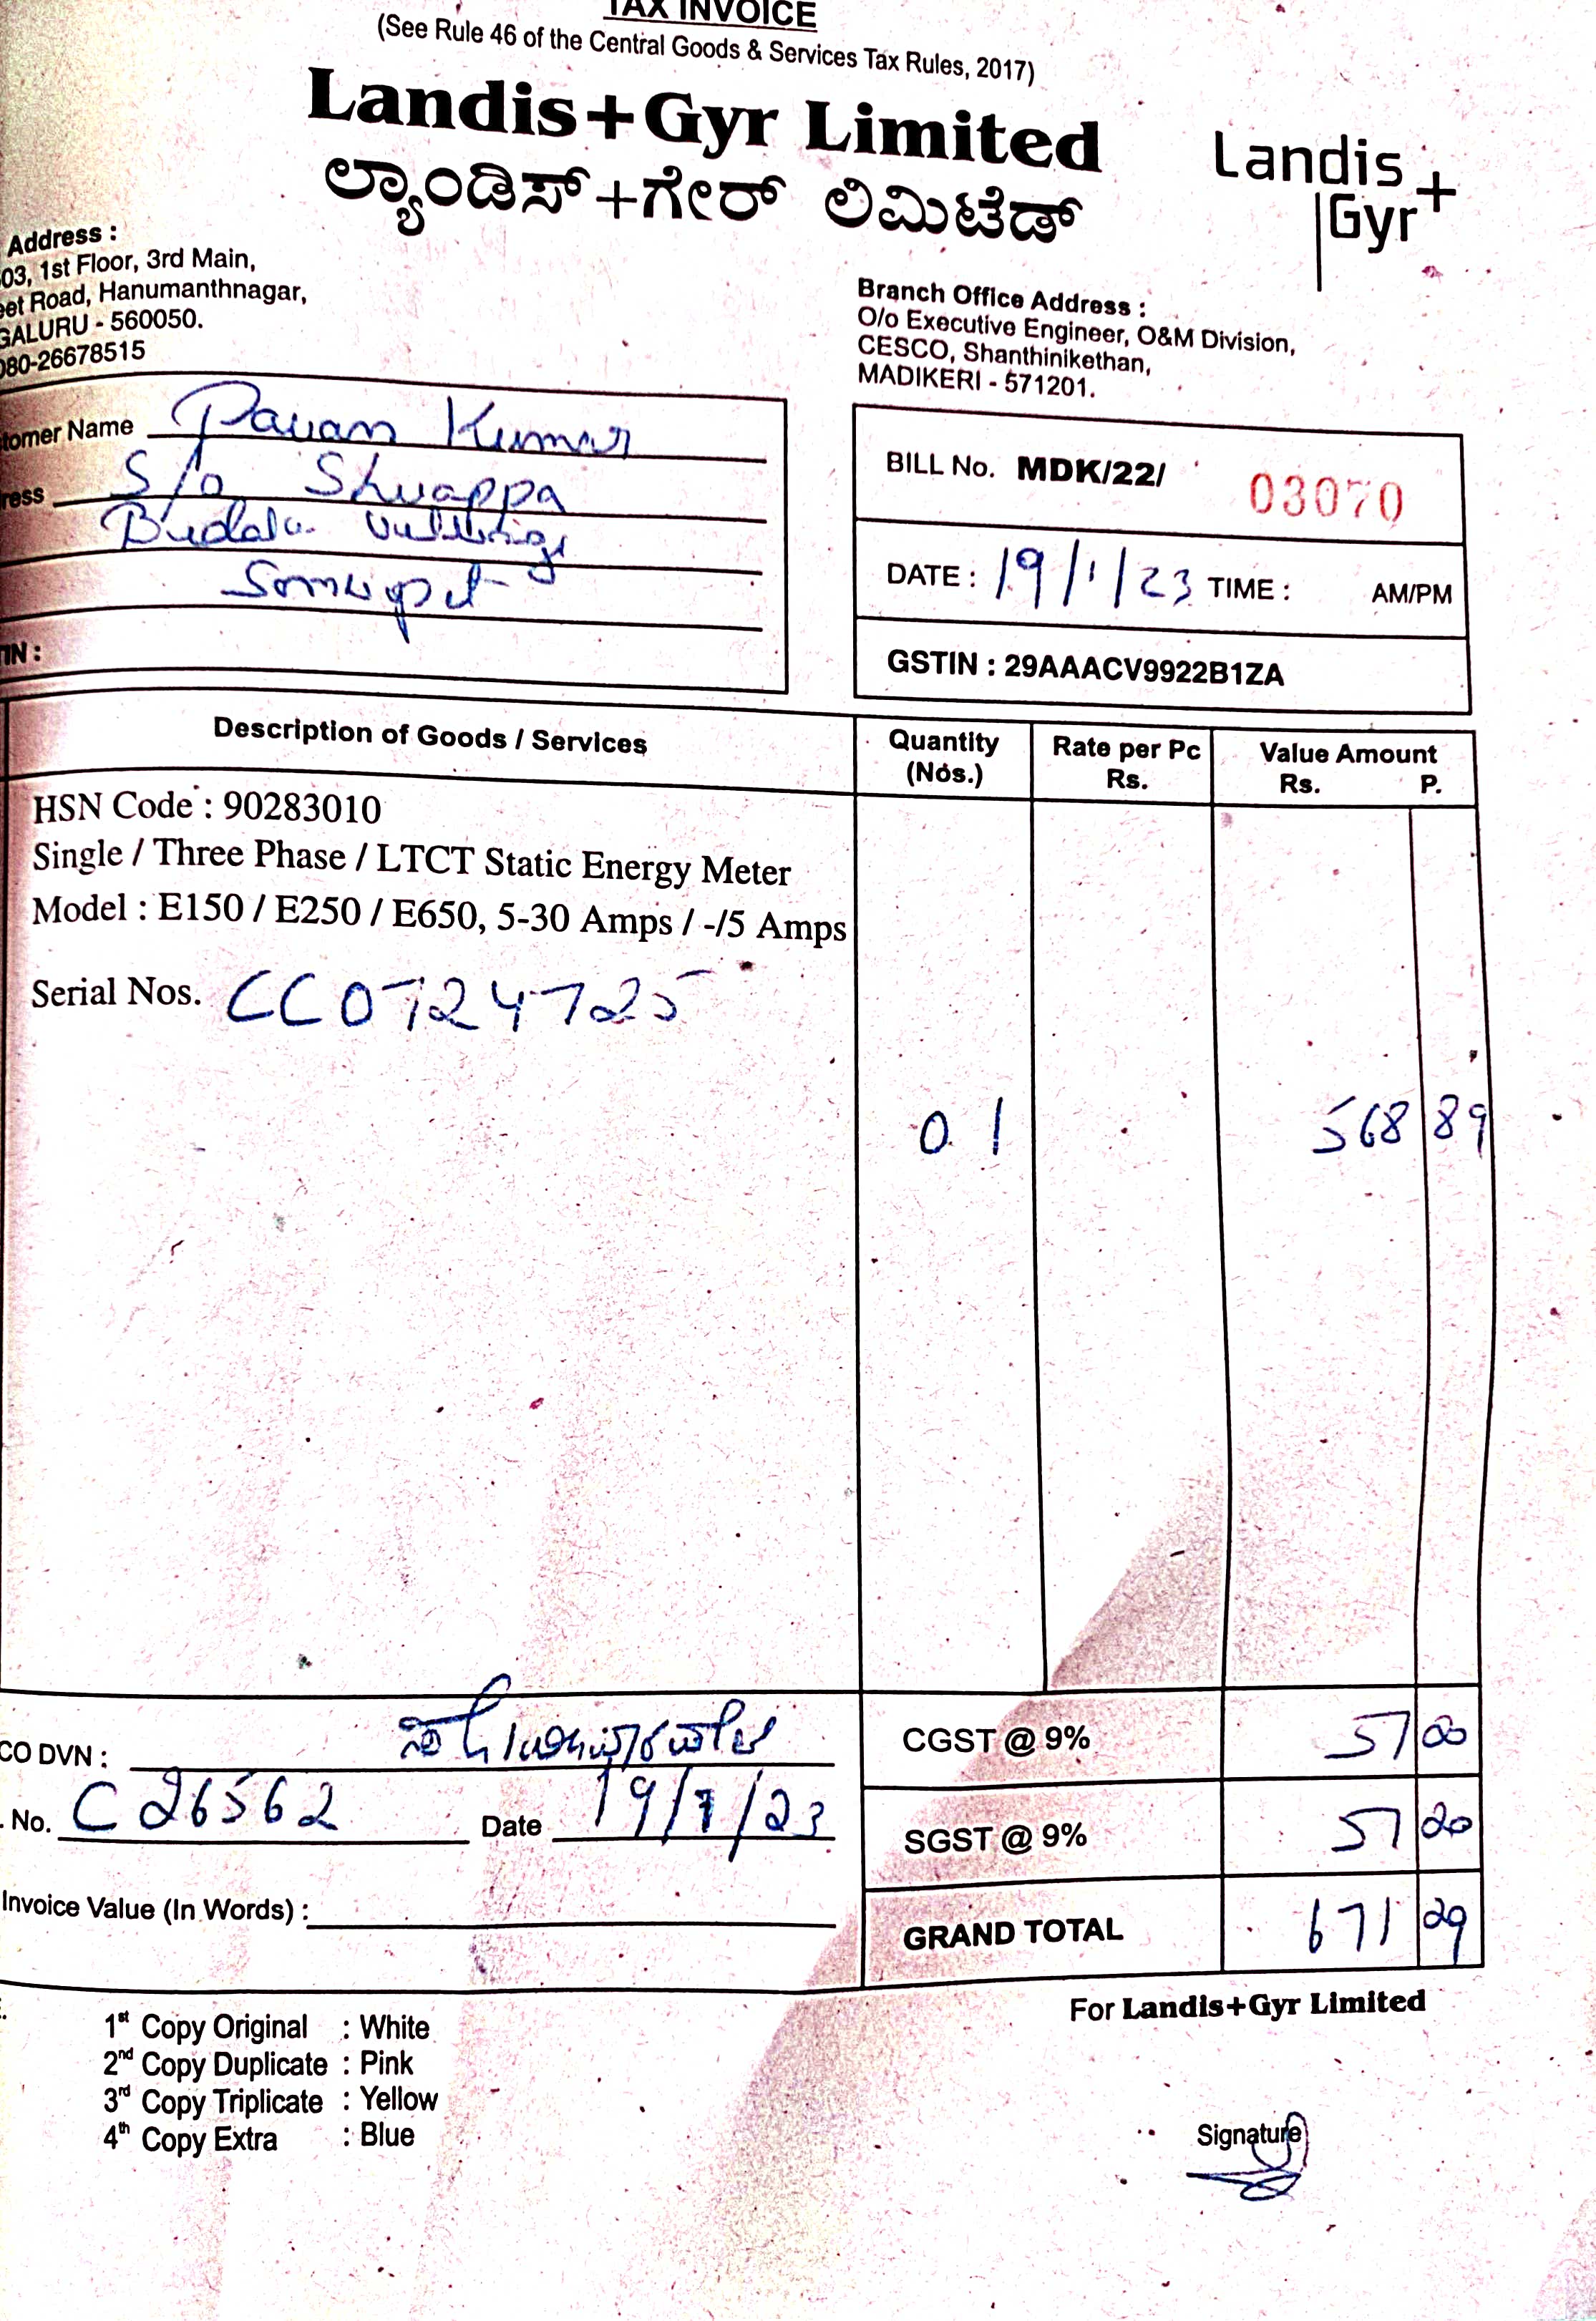 TAX INVOICE
(See Rule 46 of the Central Goods & Services Tax Rules, 2017)
Landis+Gyr Limited
ಲ್ಯಾಂಡಿಸ್+ಗೇರ್ ಲಿಮಿಟೆಡ್
Landis+
Gyr
Address :
03, 1st Floor, 3rd Main,
eet Road, Hanumanthnagar,
GALURU - 560050.
080-26678515
Branch Office Address :
O/o Executive Engineer, O&M Division,
CESCO, Shanthinikethan,
MADIKERI - 571201.
tomer Name Pavan Kumar
ress S/o
GSTIN : 29AAACV9922B1ZA
BILL No. MDK/22/ 03070
DATE : 19/1/23 TIME : AM/PM
TIN :
Description of Goods / Services Quantity (Nos.) Rate per Pc Rs. Value Amount Rs. P.
HSN Code : 90283010
Single / Three Phase / LTCT Static Energy Meter
Model : E150 / E250 / E650, 5-30 Amps / -/5 Amps
Serial Nos. CC0724725
01 568 89
CO DVN :
CGST @ 9% 57
. No. C26562 Date 19/1/23
SGST @ 9% 57 20
Invoice Value (In Words) :
GRAND TOTAL 671 29
For Landis+Gyr Limited
1st Copy Original : White
2nd Copy Duplicate : Pink
3rd Copy Triplicate : Yellow
4th Copy Extra : Blue
Signature